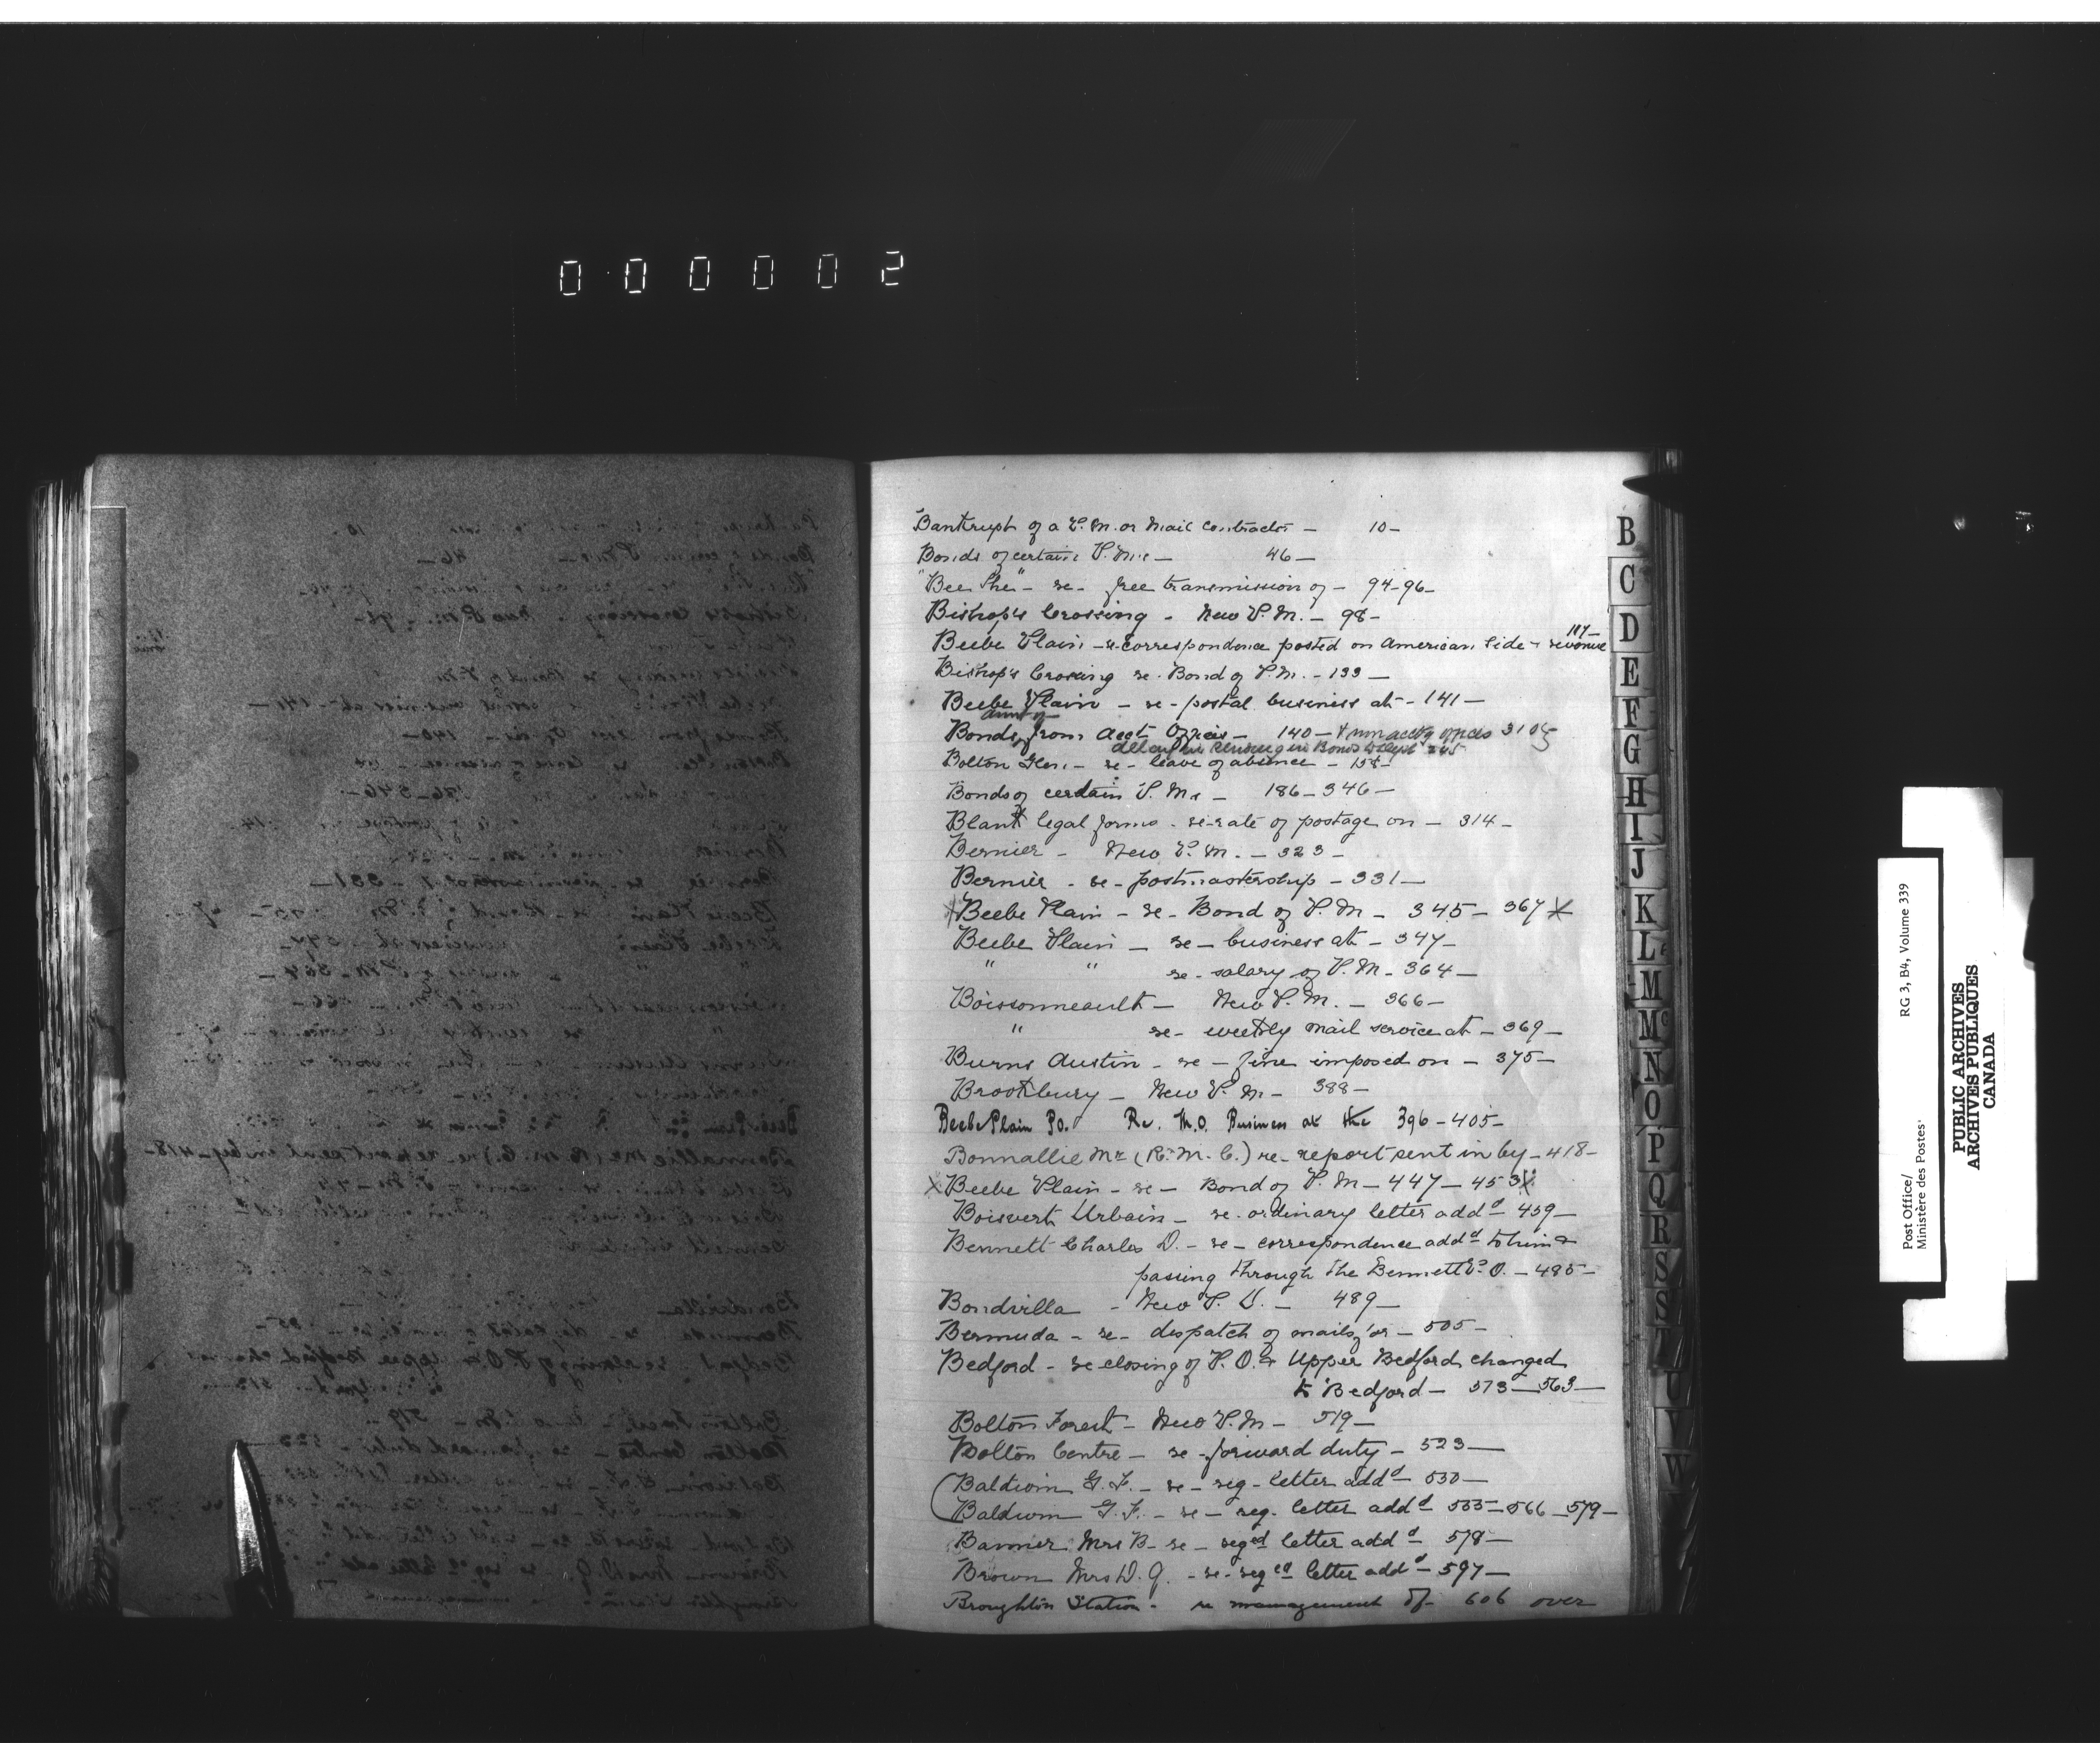 000002
Bankrupt of a P.M. or Mail Contractor - 10-
Bonds of certain P.M's - 46-
"Bee The" - re - free transmission of - 94-96-
Bishop's Crossing - New P.M. - 98-
117-
Beebe Plain - re correspondence posted on American side - revenue
Bishop's Crossing re. Bond of P.M. - 133 -
Beebe Plain - re - postal business at - 141 -
Bonds from Acct Offices - 140 - & non acctg offices 310
Bolton Glen. - re - leave of absence - 158-
Bonds of certain P.Ms - 186-346-
Blank legal forms - re-rate of postage on - 314 -
Bernier - New P.M. - 323 -
Bernier - re - postmastership - 331 -
X Beebe Plain - re - Bond of P.M - 345 - 367 X
Beebe Plain - re - business at - 347 -
" " re - salary of P.M - 364 -
Boissonneault - New P.M. - 366 -
" re - weekly mail service at - 369 -
Burns Austin - re - fine imposed on - 375 -
Brookbury - New P.M - 388 -
Beebe Plain P.O. Re. M.O. Business at the 396 - 405 -
Bonnallie Mr (R.M.C.) re - report sent in by - 418 -
X Beebe Plain - re - Bond of P.M - 447 - 453 X
Boisvert Urbain - re. ordinary letter addd - 459 -
Bennett Charles D. - re - correspondence addd to him &
passing through the Bennett P.O. - 485 -
Bondvilla - New P.O. - 489 -
Bermuda - re - despatch of mails for - 505 -
Bedford - re closing of P.O. & Upper Bedford changed
to Bedford - 513 - 563 -
Bolton Forest - New P.M - 519 -
Bolton Centre - re - forward duty - 523 -
(Baldwin G.F. - re - reg - letter addd - 530 -
(Baldwin G.F. - re - reg. letter addd 535 - 566 - 579 -
Banner Mrs B - re - reged letter addd - 578 -
Brown Mrs D.G. - re - reged letter addd - 597 -
Broughton Station - re management of - 606 over
B
C
D
E
F
G
H
I
J
K
L
M
Mc
N
O
P
Q
R
S
S
T
U
V
W
Post Office/
Ministère des Postes'
RG 3, B4, Volume 339
PUBLIC ARCHIVES
ARCHIVES PUBLIQUES
CANADA